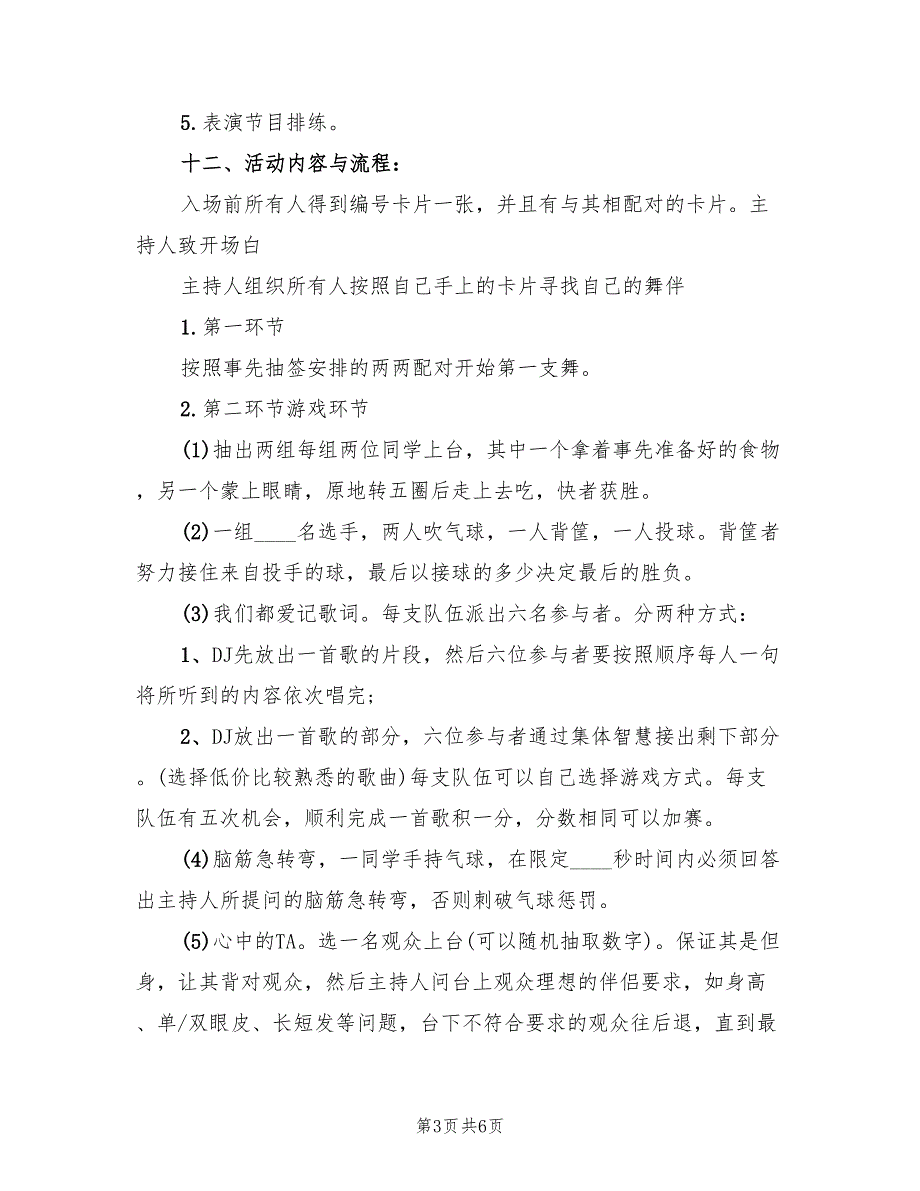 5.表演节目排练。
十二、活动内容与流程：
入场前所有人得到编号卡片一张，并且有与其相配对的卡片。主
持人致开场白
主持人组织所有人按照自己手上的卡片寻找自己的舞伴
1.第一环节
按照事先抽签安排的两两配对开始第一支舞。
2.第二环节游戏环节
(1)抽出两组每组两位同学上台，其中一个拿着事先准备好的食物
，另一个蒙上眼睛，原地转五圈后走上去吃，快者获胜。
(2)一组____名选手，两人吹气球，一人背筐，一人投球。背筐者
努力接住来自投手的球，最后以接球的多少决定最后的胜负。
(3)我们都爱记歌词。每支队伍派出六名参与者。分两种方式：
1、DJ先放出一首歌的片段，然后六位参与者要按照顺序每人一句
将所听到的内容依次唱完;
2、DJ放出一首歌的部分，六位参与者通过集体智慧接出剩下部分
。(选择低价比较熟悉的歌曲)每支队伍可以自己选择游戏方式。每支
队伍有五次机会，顺利完成一首歌积一分，分数相同可以加赛。
(4)脑筋急转弯，一同学手持气球，在限定____秒时间内必须回答
出主持人所提问的脑筋急转弯，否则刺破气球惩罚。
(5)心中的TA。选一名观众上台(可以随机抽取数字)。保证其是但
身，让其背对观众，然后主持人问台上观众理想的伴侣要求，如身高
、单/双眼皮、长短发等问题，台下不符合要求的观众往后退，直到最
第3页共6页